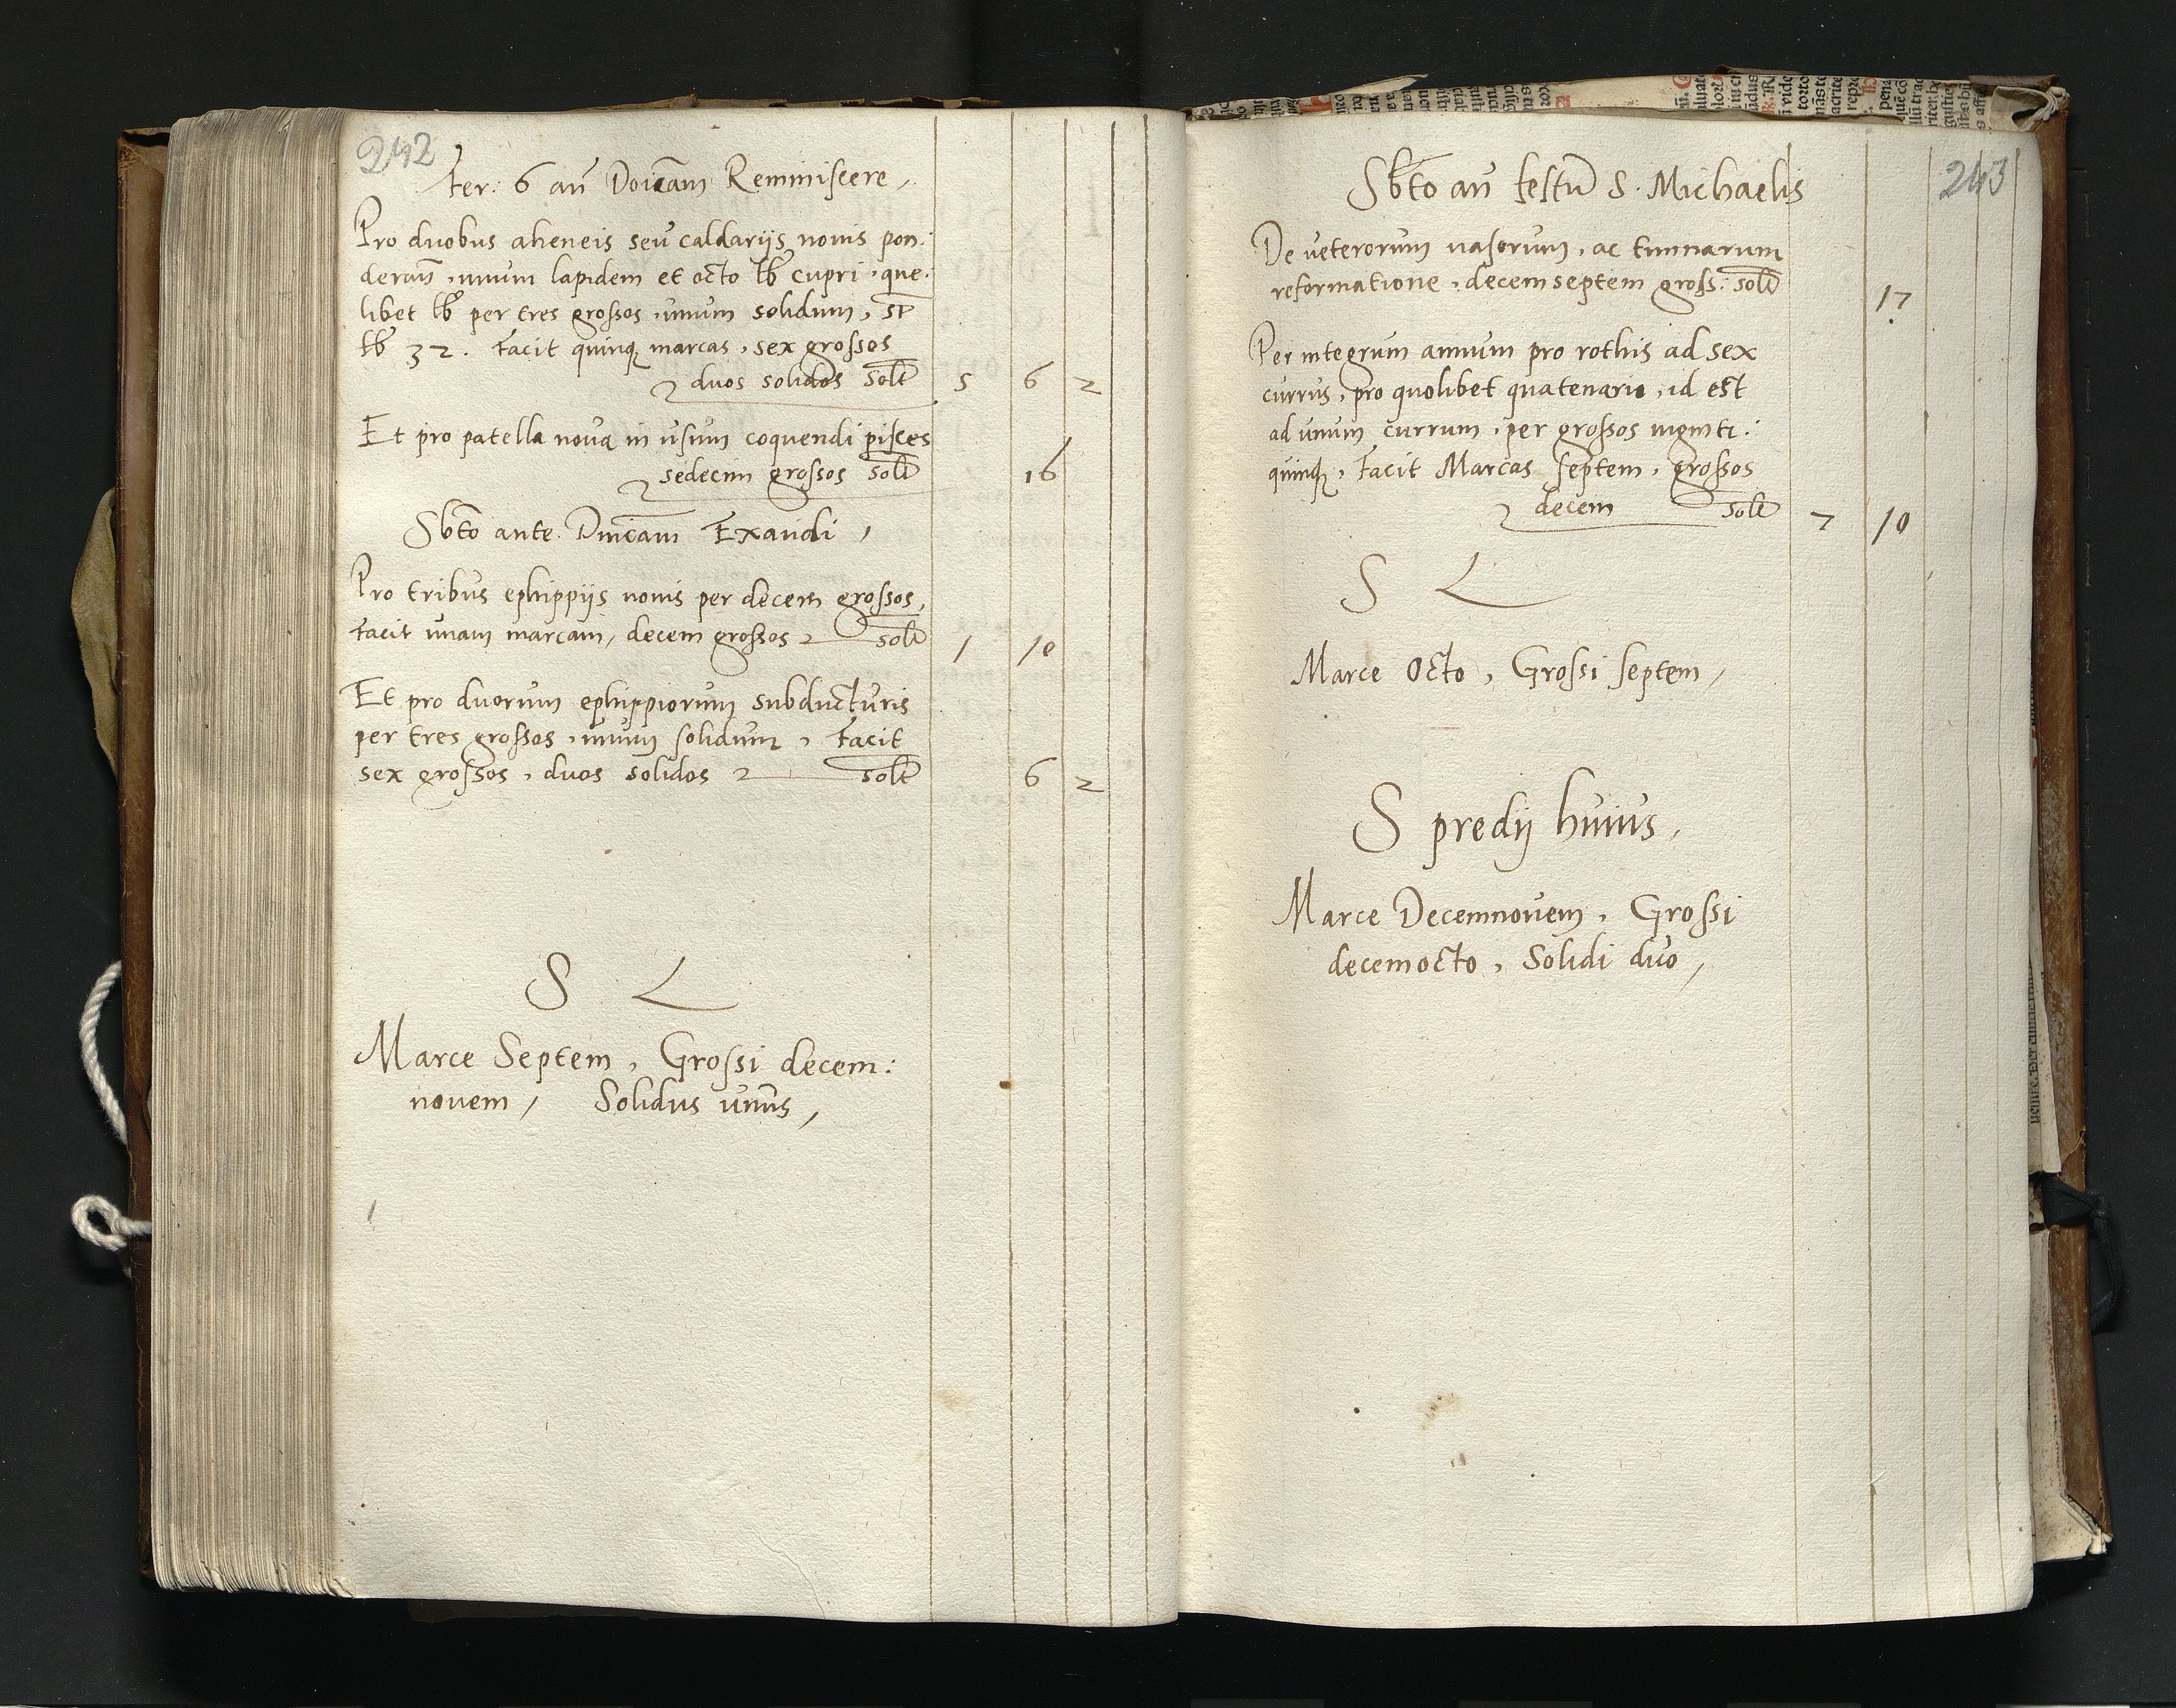 242
Fer: 6 an̄ Doīcam Reminiscere,
Pro duobus aheneis seu caldarijs nouis pon:
deran̄, unum lapidem et octo lb cupri, que:
libet lb per tres grossos, unum solidum, s̄t
lb 32. Facit quinq marcas, sex grossos
duos solidos solt 5 6 2
Et pro patella noua in usum coquendi pisces
sedecim grossos solt 16
Sbto ante Dnicam Exaudi,
Pro tribus ephippijs nouis per decem grossos,
Facit unam marcam, decem grossos solt 1 10
Et pro duorum ephippiorum subducturis
per tres grossos, unum solidum, Facit
sex grossos, duos solidos solt 6 2
S L
Marce Septem, Grossi decem:
nouem, Solidus unus,
243
Sbto an̄ festū S. Michaelis
De ueterorum uasorum, ac tinnarum
reformatione, decemseptem gross: solt 17
Per integrum annum pro rothis ad sex
currus, pro quolibet quatenario, id est
ad unum currum, per grossos uiginti:
quinq, Facit Marcas septem, grossos
decem solt 7 10
S L
Marce Octo, Grossi septem,
S predij huius,
Marce Decemnouem, Grossi
decemocto, Solidi duo,